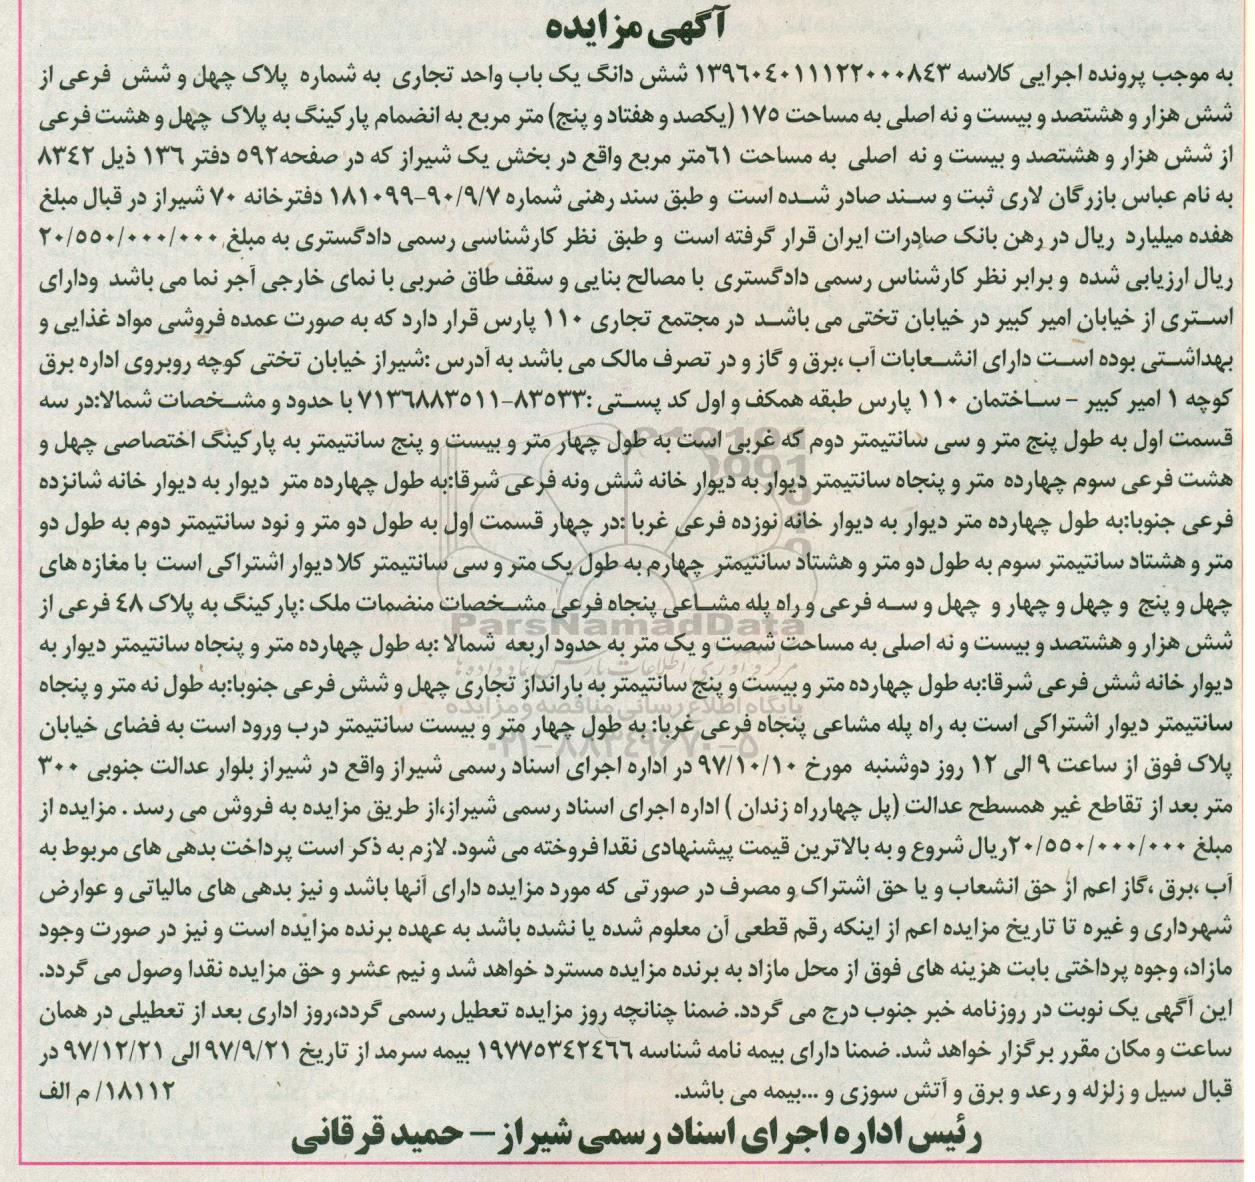 آگهی مزایده
به موجب پرونده اجرایی کلاسه ۱۳۹٦۰٤۰۱۱۱۲۲۰۰۰۸٤۳ شش دانگ یک باب واحد تجاری به شماره پلاک چهل و شش فرعی از
شش هزار و هشتصد و بیست و نه اصلی به مساحت ۱۷۵ (یکصد و هفتاد و پنج) متر مربع به انضمام پارکینگ به پلاک چهل و هشت فرعی
از شش هزار و هشتصد و بیست و نه اصلی به مساحت ٦۱متر مربع واقع در بخش یک شیراز که در صفحه۵۹۲ دفتر ۱۳٦ ذیل ۸۳٤۲
به نام عباس بازرگان لاری ثبت و سـند صادر شـده است و طبق سند رهنی شماره ۹۰/۹/۷-۱۸۱۰۹۹ دفترخانه ۷۰ شیراز در قبال مبلغ
هفده میلیارد ریال در رهن بانک صادرات ایران قرار گرفته است و طبق نظر کارشناسی رسمی دادگستری به مبلغ ۲۰/۵۵۰/۰۰۰/۰۰۰
ریال ارزیابی شده و برابر نظر کارشناس رسمی دادگستری با مصالح بنایی و سقف طاق ضربی با نمای خارجی آجر نما می باشد ودارای
اسـتری از خیابان امیر کبیر در خیابان تختی می باشـد در مجتمع تجاری ۱۱۰ پارس قرار دارد که به صورت عمده فروشی مواد غذایی و
بهداشـتی بوده اسـت دارای انشـعابات آب ،برق و گاز و در تصرف مالک می باشد به آدرس :شیراز خیابان تختی کوچه روبروی اداره برق
کوچه ۱ امیر کبیر – سـاختمان ۱۱۰ پارس طبقه همکف و اول کد پسـتی :۸۳۵۳۳-۷۱۳٦۸۸۳۵۱۱ با حدود و مشـخصات شمالا:در سه
قسمت اول به طول پنج متر و سی سانتیمتر دوم که غربی است به طول چهار متر و بیست و پنج سانتیمتر به پارکینگ اختصاصی چهل و
هشت فرعی سوم چهارده متر و پنجاه سانتیمتر دیوار به دیوار خانه شش ونه فرعی شرقا:به طول چهارده متر دیوار به دیوار خانه شانزده
فرعی جنوبا:به طول چهارده متر دیوار به دیوار خانه نوزده فرعی غربا :در چهار قسمت اول به طول دو متر و نود سانتیمتر دوم به طول دو
متر و هشتاد سانتیمتر سوم به طول دو متر و هشتاد سانتیمتر چهارم به طول یک متر و سی سانتیمتر کلا دیوار اشتراکی است با مغازه های
چهل و پنج و چهل و چهار و چهل و سـه فرعی و راه پله مشـاعی پنجاه فرعی مشـخصات منضمات ملک :پارکینگ به پلاک ٤۸ فرعی از
شش هزار و هشتصد و بیست و نه اصلی به مساحت شصت و یک متر به حدود اربعه شمالا :به طول چهارده متر و پنجاه سانتیمتر دیوار به
دیوار خانه شش فرعی شرقا:به طول چهارده متر و بیست و پنج سانتیمتر به بارانداز تجاری چهل و شش فرعی جنوبا:به طول نه متر و پنجاه
سانتیمتر دیوار اشتراکی است به راه پله مشاعی پنجاه فرعی غربا: به طول چهار متر و بیست سانتیمتر درب ورود است به فضای خیابان
پلاک فوق از ساعت ۹ الی ۱۲ روز دوشنبه مورخ ۹۷/۱۰/۱۰ در اداره اجرای اسناد رسمی شیراز واقع در شیراز بلوار عدالت جنوبی ۳۰۰
متر بعد از تقاطع غیر همسطح عدالت (پل چهارراه زندان ) اداره اجرای اسناد رسمی شیراز،از طریق مزایده به فروش می رسد . مزایده از
مبلغ ۲۰/۵۵۰/۰۰۰/۰۰۰ریال شروع و به بالاترین قیمت پیشنهادی نقدا فروخته می شود. لازم به ذکر است پرداخت بدهی های مربوط به
آب ،برق ،گاز اعم از حق انشعاب و یا حق اشتراک و مصرف در صورتی که مورد مزایده دارای آنها باشد و نیز بدهی های مالیاتی و عوارض
شهرداری و غیره تا تاریخ مزایده اعم از اینکه رقم قطعی آن معلوم شده یا نشده باشد به عهده برنده مزایده است و نیز در صورت وجود
مازاد، وجوه پرداختی بابت هزینه های فوق از محل مازاد به برنده مزایده مسترد خواهد شد و نیم عشر و حق مزایده نقدا وصول می گردد.
این آگهی یک نوبت در روزنامه خبر جنوب درج می گردد. ضمنا چنانچه روز مزایده تعطیل رسمی گردد،روز اداری بعد از تعطیلی در همان
ساعت و مکان مقرر برگزار خواهد شد. ضمنا دارای بیمه نامه شناسه ۱۹۷۷۵۳٤۲٤٦٦ بیمه سرمد از تاریخ ۹۷/۹/۲۱ الی ۹۷/۱۲/۲۱ در
قبال سیل و زلزله و رعد و برق و آتش سوزی و ...بیمه می باشد.
۱۸۱۱۲/ م الف
رئیس اداره اجرای اسناد رسمی شیراز – حمید قرقانی
ParsNamadData
پایگاه اطلاع رسانی مناقصه و مزایده
۰۲۱-۸۸۳٤۹٦۷۰-۵